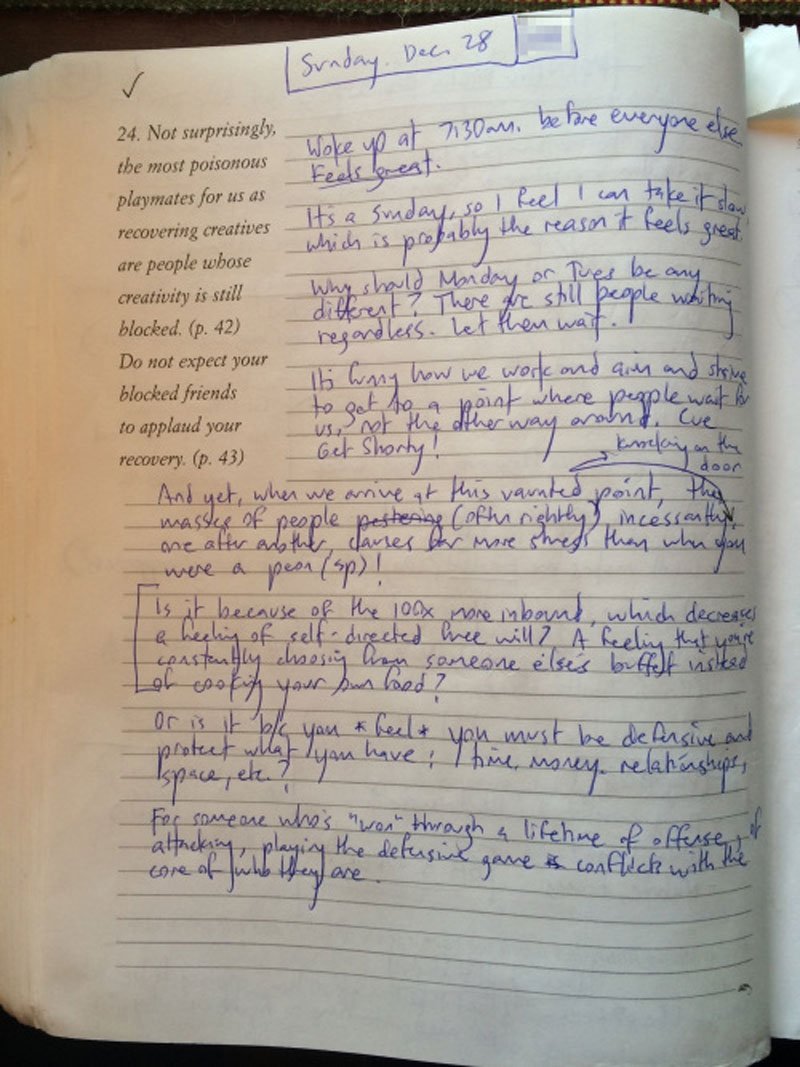 Sunday. Dec. 28
✓
24. Not surprisingly,
the most poisonous
playmates for us as
recovering creatives
are people whose
creativity is still
blocked. (p. 42)
Do not expect your
blocked friends
to applaud your
recovery. (p. 43)
Woke up at 7:30am. before everyone else
Feels great.
It's a Sunday, so I feel I can take it slow,
which is probably the reason it feels great.
Why should Monday or Tues be any
different? There are still people waiting
regardless. Let them wait.
It's funny how we work and aim and strive
to get to a point where people wait for
us, not the other way around. Cue
Get Shorty!
knocking on the
door
And yet, when we arrive at this vaunted point, the
masses of people pestering (often rightly), incessantly,
one after another, causes far more stress than when you
were a peon (sp)!
Is it because of the 100x more inbound, which decreases
a feeling of self-directed free will? A feeling that you're
constantly choosing from someone else's buffet instead
of cooking your own food?
Or is it b/c you *feel* you must be defensive and
protect what you have: time, money, relationships,
space, etc.?
For someone who's "won" through a lifetime of offense, of
attacking, playing the defensive game conflicts with the
core of who they are.